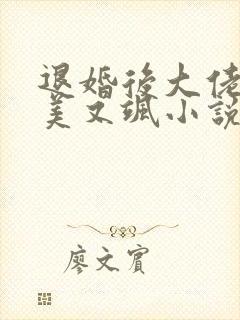 退婚後大佬
美又颯小說
廖文賓